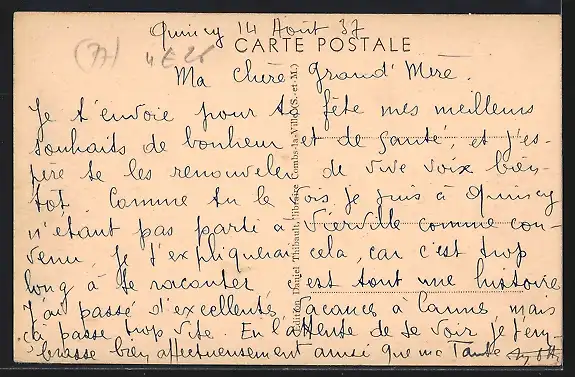 Quincy 14 Août 37
(77) 4E28
CARTE POSTALE
Ma chère Grand' Mère.
Je t'envoie pour ta fête mes meilleurs
souhaits de bonheur et de santé, et j'es-
père te les renouveler de vive voix bien-
tôt. Comme tu le vois, je suis à Quincy
n'étant pas parti à Vierville comme con-
venu, je t'expliquerai cela, car c'est trop
long à te raconter c'est tout une histoire
J'ai passé d'excellents vacances à Cannes mais
ça passe trop vite. En l'attente de te voir je t'em-
brasse bien affectueusement ainsi que ma Tante
Edition Daniel Thibault, libraire Combs-la-Ville (S.-et-M.)